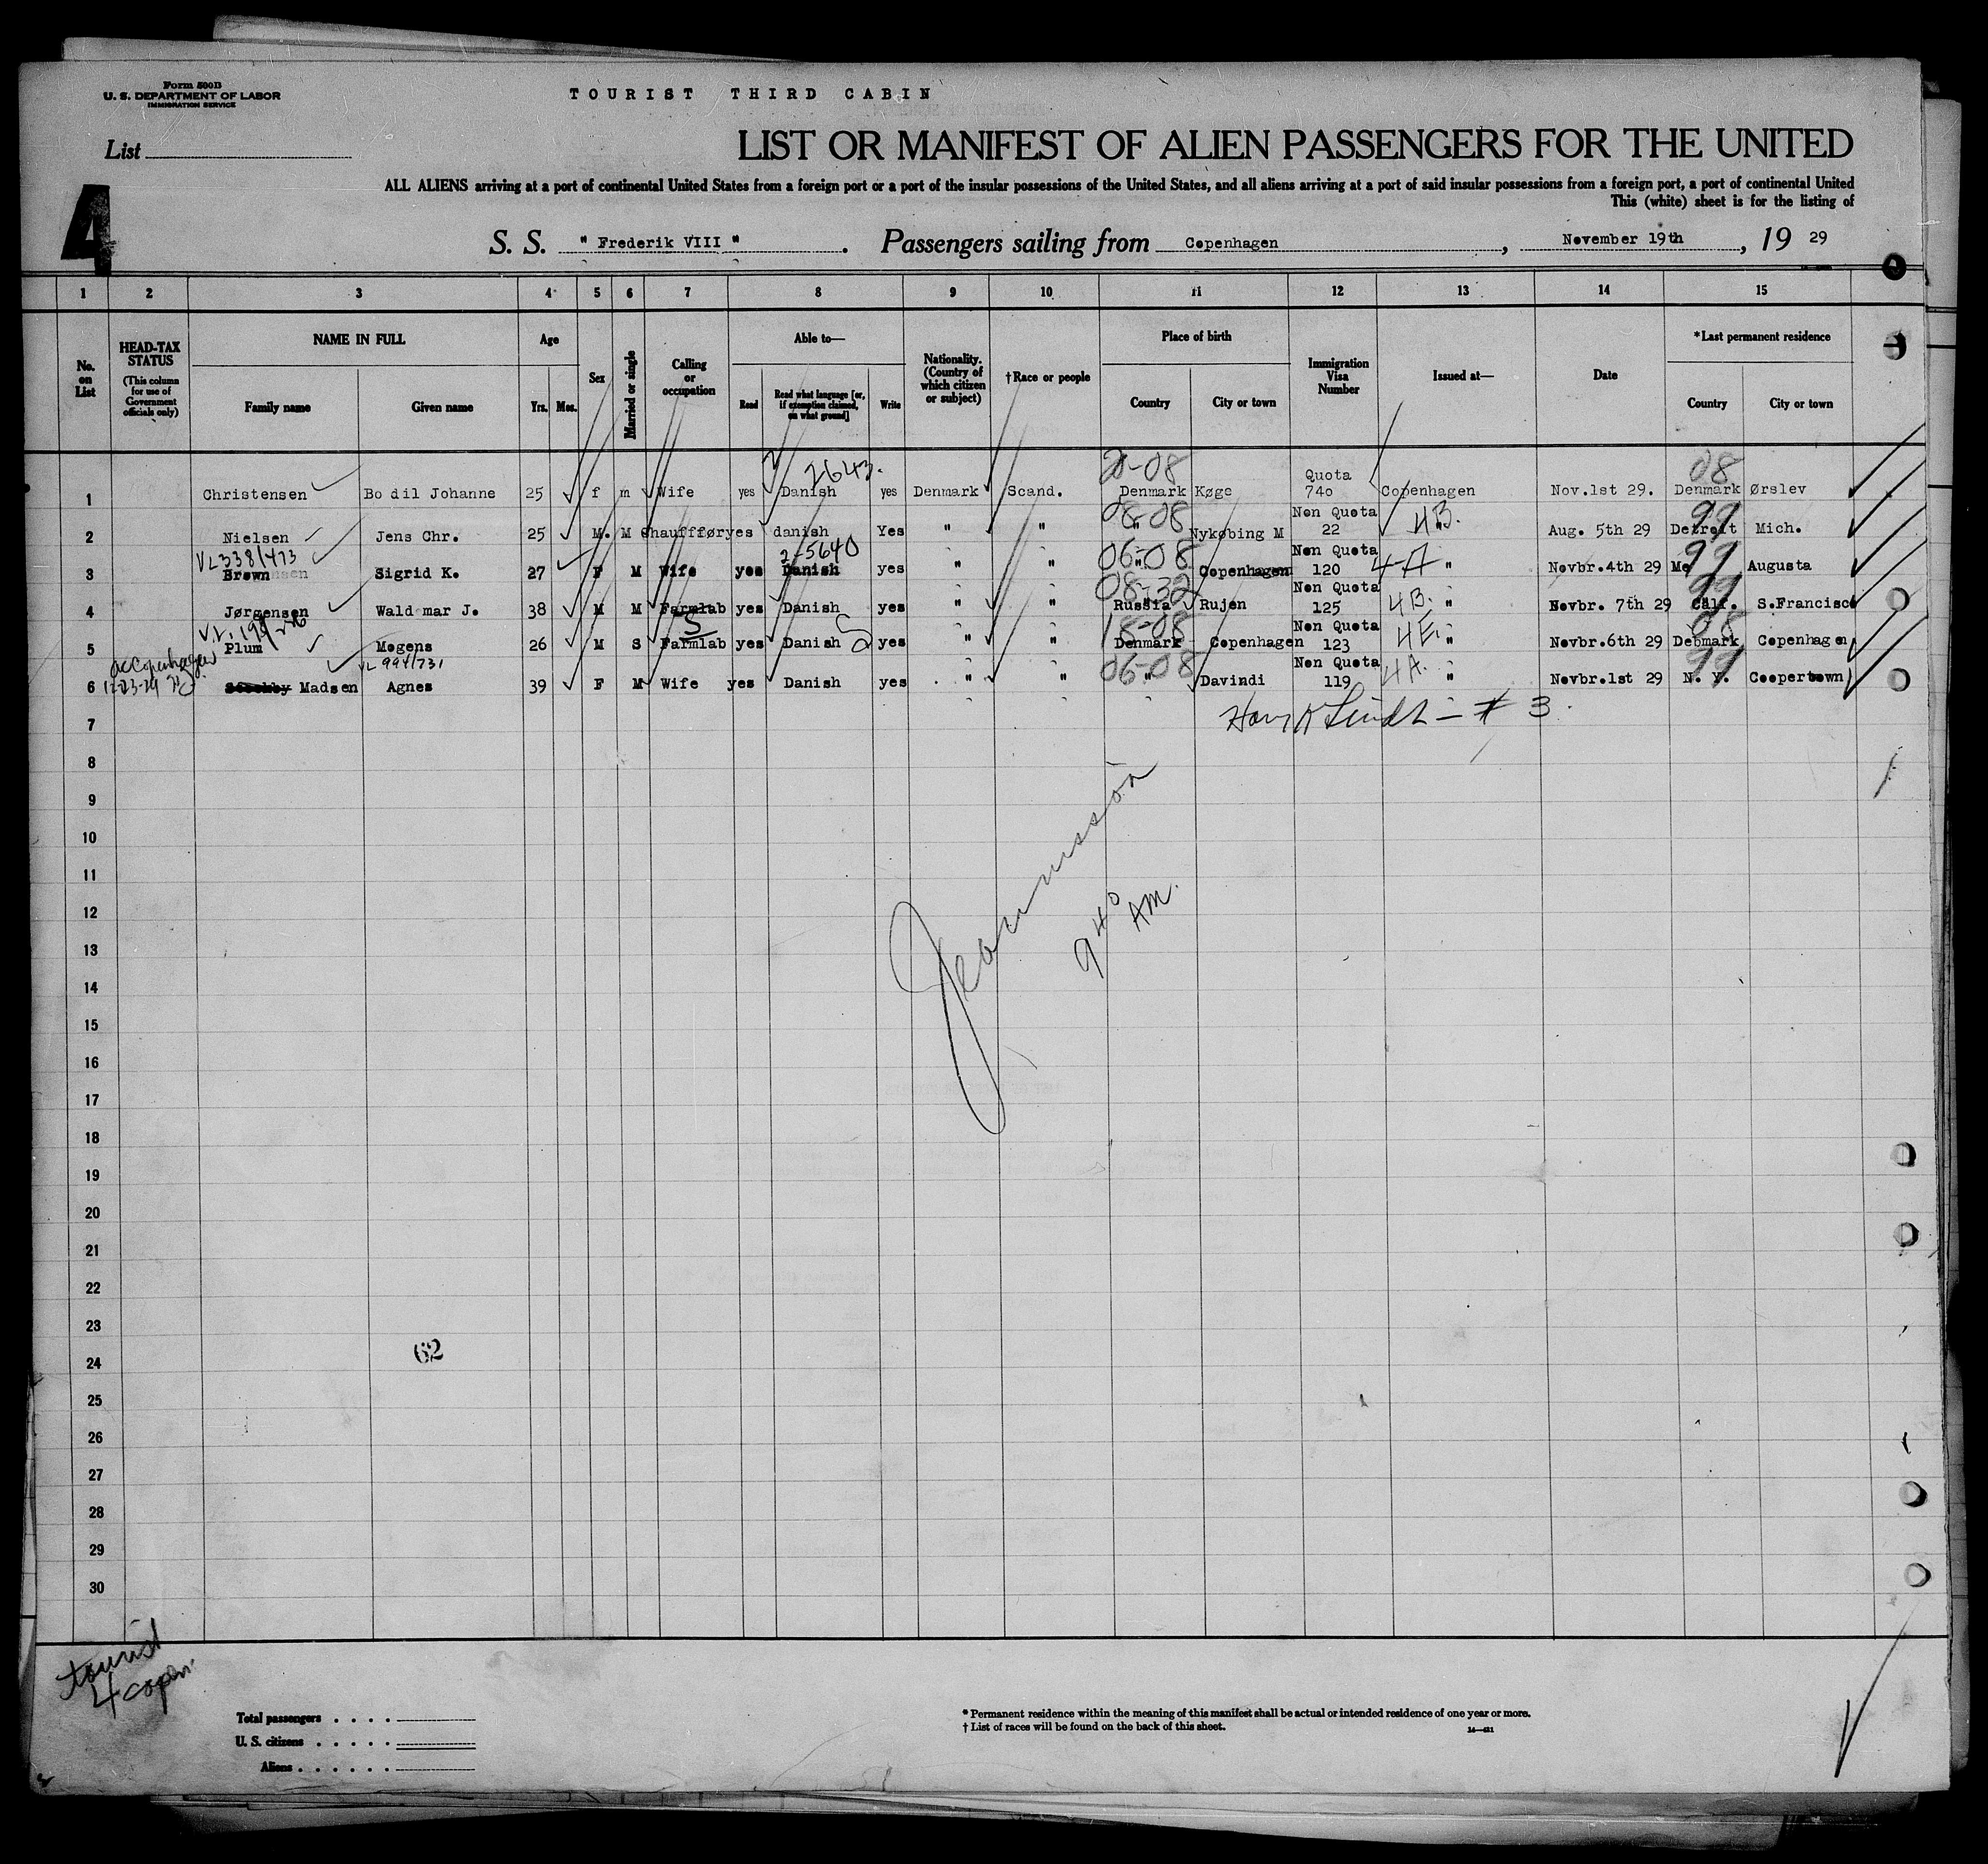 Form 500B
U. S. DEPARTMENT OF LABOR
IMMIGRATION SERVICE
TOURIST THIRD CABIN
List
LIST OR MANIFEST OF ALIEN PASSENGERS FOR THE UNITED
ALL ALIENS arriving at a port of continental United States from a foreign port or a port of the insular possessions of the United States, and all aliens arriving at a port of said insular possessions from a foreign port, a port of continental United
This (white) sheet is for the listing of
4
S. S. " Frederik VIII " . Passengers sailing from Copenhagen , November 19th , 19 29
1 2 3 4 5 6 7 8 9 10 11 12 13 14 15
No. on List
HEAD-TAX STATUS
(This column for use of Government officials only)
NAME IN FULL
Family name Given name
Age
Yrs. Mos.
Sex
Married or single
Calling or occupation
Able to—
Read
Read what language [or, if exemption claimed, on what ground]
Write
Nationality. (Country of which citizen or subject)
† Race or people
Place of birth
Country City or town
Immigration Visa Number
Issued at—
Date
* Last permanent residence
Country City or town
2643. 20-08 Quota 08
1 Christensen Bo dil Johanne 25 f m Wife yes Danish yes Denmark Scand. Denmark Køge 740 Copenhagen Nov.1st 29. Denmark Ørslev
08-08 Non Quota 4B. 99
2 Nielsen Jens Chr. 25 M. M Chaufffør yes danish Yes " " " Nykøbing M 22 " Aug. 5th 29 Detroit Mich.
VL338/473 2-5640 06-08 Non Quota 4-A 99
3 Brown Sigrid K. 27 F M Wife yes Danish yes " " " Copenhagen 120 " Novbr.4th 29 Me Augusta
08-32 Non Quota 4B. 99
4 Jørgensen Wald mar J. 38 M M Farmlab yes Danish yes " " Russia Rujen 125 " Novbr. 7th 29 Calf. S.Francisco
S 18-08 Non Quota 4E. 08
5 Plum Mogens 26 M S Farmlab yes Danish yes " " Denmark Copenhagen 123 " Novbr.6th 29 Debmark Copenhagen
VL 994/731 06-08 Non Quota 4A. 99
6 Madsen Agnes 39 F M Wife yes Danish yes " " " Davindi 119 " Novbr.1st 29 N. Y. Coopertown
7
# 3
8
9
10
11
12
9 40 AM.
13
14
15
16
17
18
19
20
21
22
23
24
62
25
26
27
28
29
30
tourist
4 copen
Total passengers
U. S. citizens
Aliens
* Permanent residence within the meaning of this manifest shall be actual or intended residence of one year or more.
† List of races will be found on the back of this sheet.